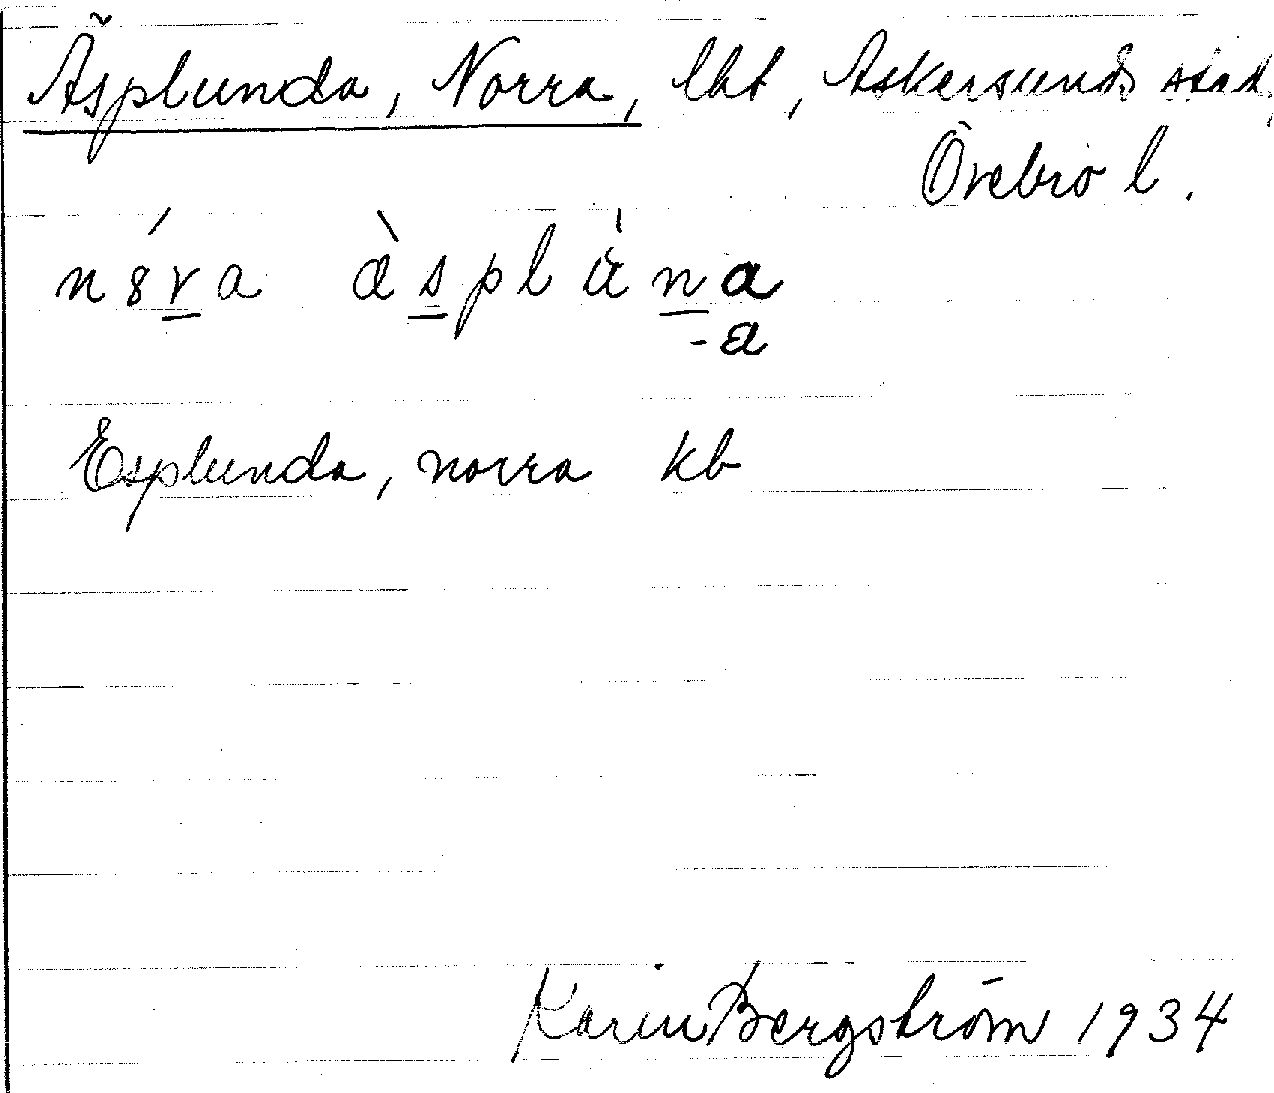 Äsplunda, Norra, lht, Askersunds stad,
Örebro l.
n8́r̲a æ̀s̳plu̇̀n̲a
-a
Esplunda, norra kb
Karin Bergström 1934